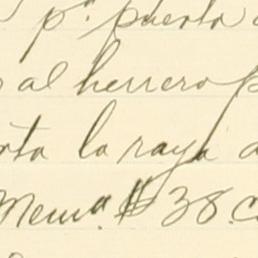 pª. puerta
al herrero p
ta la raya
Mem.ª $38.